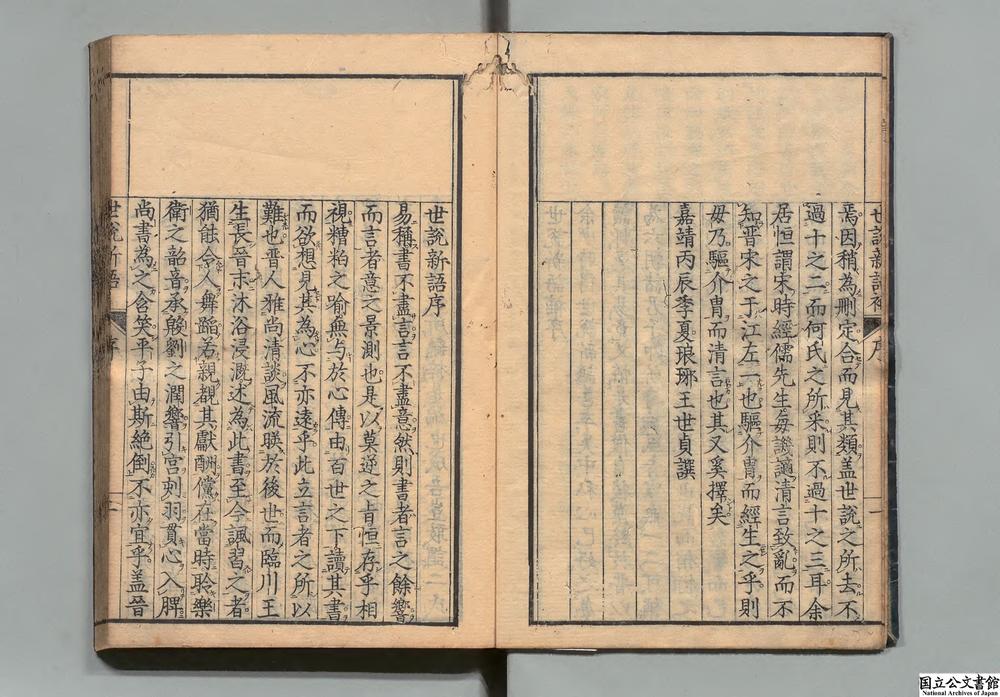 世說新語補 序 一
焉因稍為刪定合而見其類盖世說之所去不
過十之二而何氏之所采則不過十之三耳余
居恒謂宋時經儒先生每譏謫清言致亂而不
知晋宋之于江左一也驅介冑而經生之乎則
毋乃驅介冑而清言也其又奚擇矣
嘉靖丙辰季夏琅琊王世貞譔
世說新語序
易稱書不盡言言不盡意然則書者言之餘響
而言者意之景測也是以莫逆之旨恒存乎相
視糟粕之喻無与於心傳由百世之下讀其書
而欲想見其為心不亦遠乎此立言者之所以
難也晋人雅尚清談風流映於後世而臨川王
生長晋末沐浴浸溉述為此書至今諷習之者
猶能令人舞蹈若親覩其獻酬儻在當時聆樂
衛之韶音承殷劉之潤響引宫刻羽貫心入脾
尚書為之含笑平子由斯絕倒不亦宜乎盖晉
世說新語 序
国立公文書館
National Archives of Japan